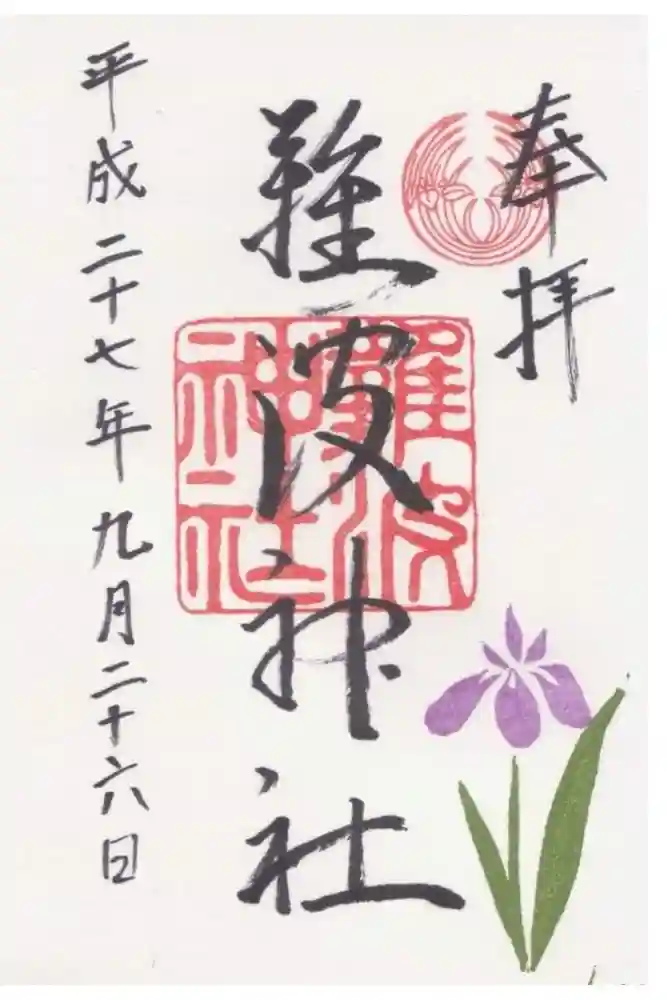 奉拝
難波神社
難波神社
平成二十七年九月二十六日